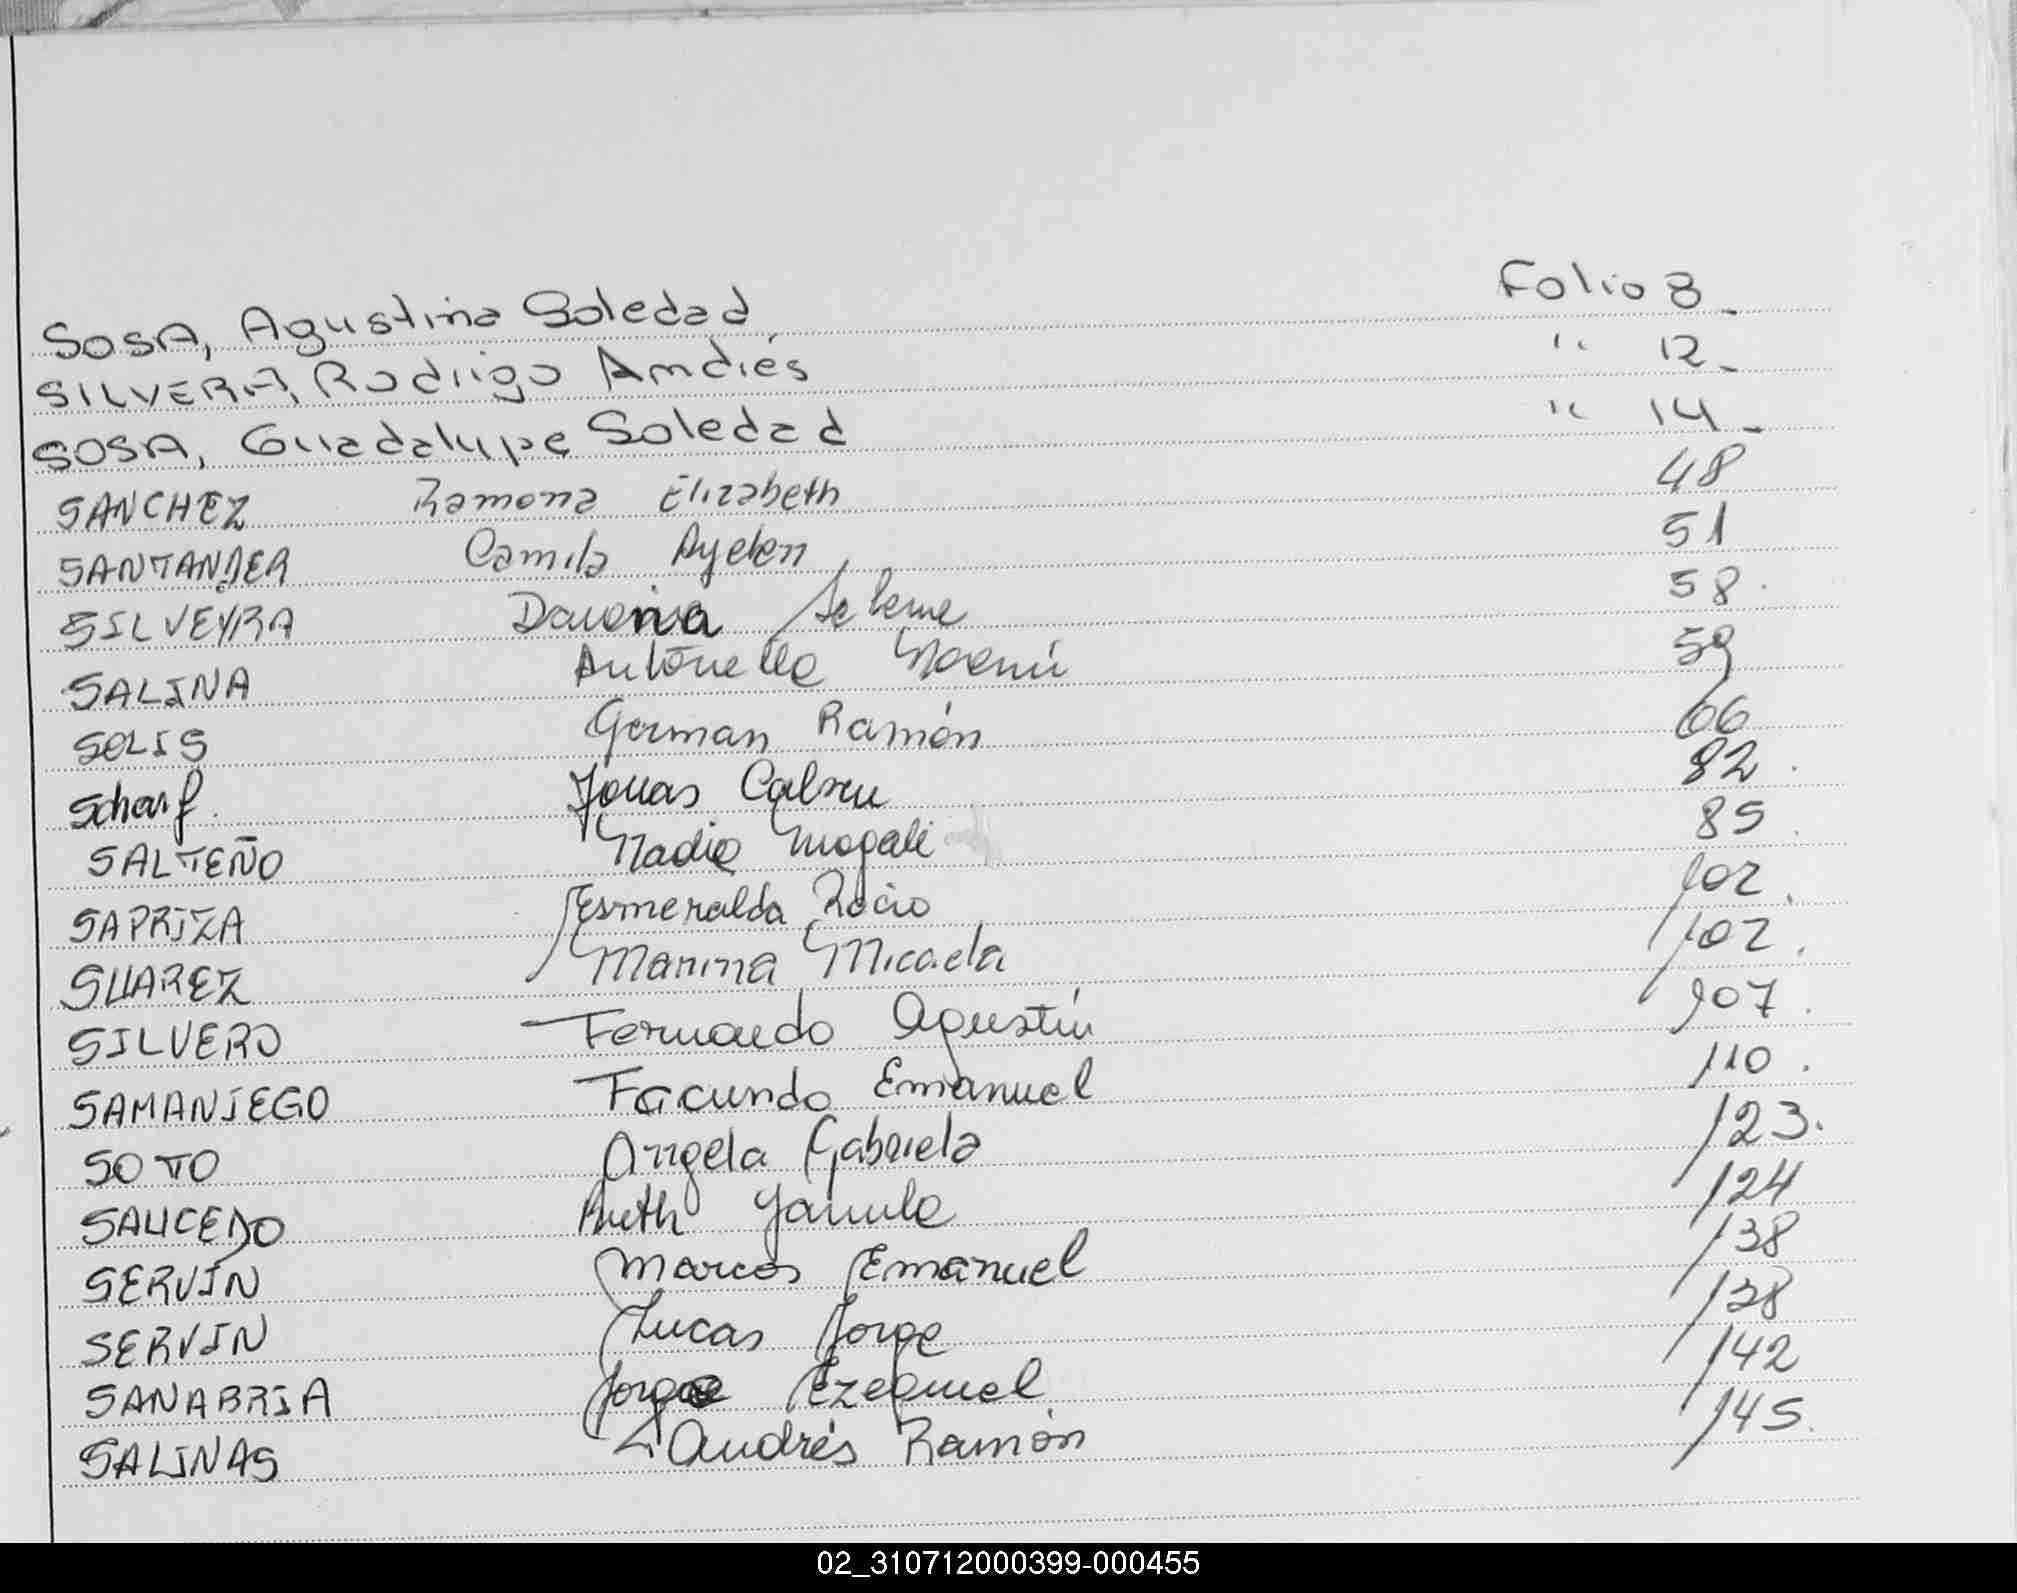 SOSA, Agustina Soledad Folio 8_
SILVERA, Rodrigo Andrés " 12_
SOSA, Guadalupe Soledad " 14_
SANCHEZ Ramona Elizabeth 48
SANTANDER Camila Ayelen 51
SILVEYRA Selene 58.
SALINA Antonella Noemí 59
SOLIS German Ramón 66
Scharf. Jonas 82.
SALTEÑO Nadia Magali 85.
SAPRIZA Esmeralda Rocio 102.
SUAREZ Marina Micaela 102.
SILVERO Fernando Agustín 107.
SAMANIEGO Facundo Emanuel 110.
SOTO Angela Gabriela 123.
SAUCEDO Ruth Yamila 124
SERVIN Marcos Emanuel 138
SERVIN Lucas Jorge 138
SANABRIA Jorge Ezequiel 142
SALINAS Andrés Ramón 145.
02_310712000399-000455